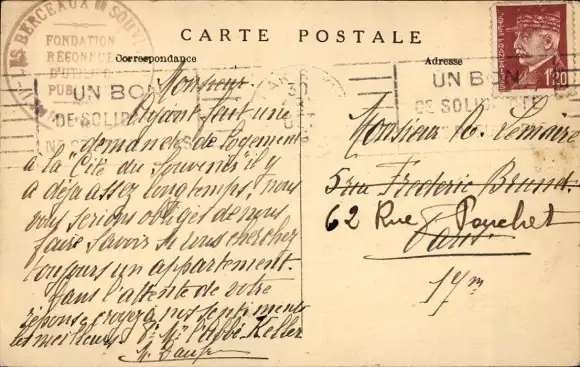 CARTE POSTALE
Correspondance
Adresse
LES BERCEAUX
SOUV
FONDATION
RECONNUE
D'UTI
PUB
UN BON
DE SOLI
UN BON
DE SOLID
1F20
Monsieur
Ayant fait une
demande de logement
à la "Cité du Souvenir" il y
a déjà assez longtemps, nous
vous serions obligés de nous
faire savoir si vous cherchez
toujours un appartement.
Dans l'attente de votre
réponse, croyez à nos sentiments
les meilleurs. Pr Mr l'Abbé Keller
Monsieur A. Lemaire
5 rue Frédéric Brunet
62 Rue Pouchet
Paris
17m